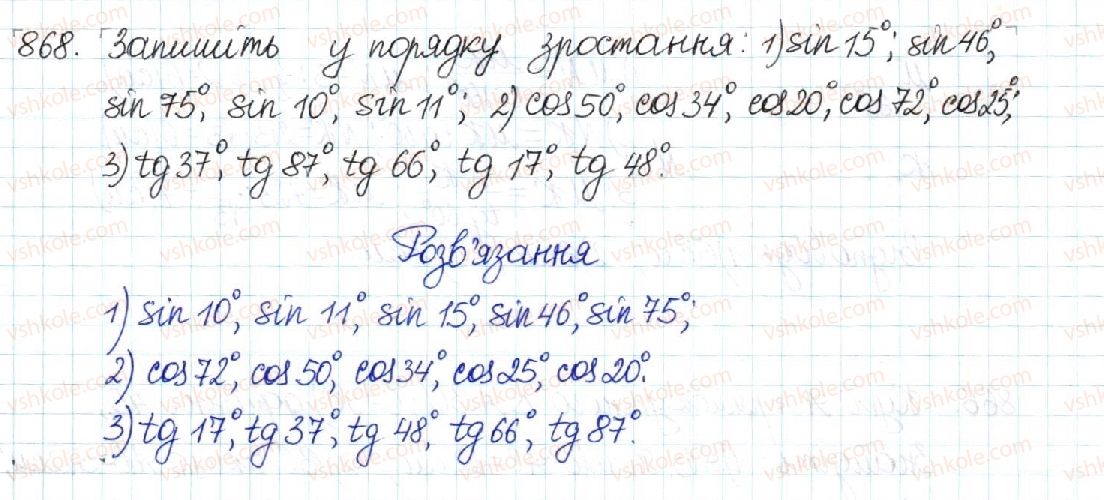 868. Запишіть у порядку зростання: 1) sin 15°; sin 46°,
sin 75°, sin 10°, sin 11°; 2) cos 50°, cos 34°, cos 20°, cos 72°, cos 25°;
3) tg 37°, tg 87°, tg 66°, tg 17°, tg 48°.
Розв'язання
1) sin 10°, sin 11°, sin 15°, sin 46°, sin 75°;
2) cos 72°, cos 50°, cos 34°, cos 25°, cos 20°.
3) tg 17°, tg 37°, tg 48°, tg 66°, tg 87°.